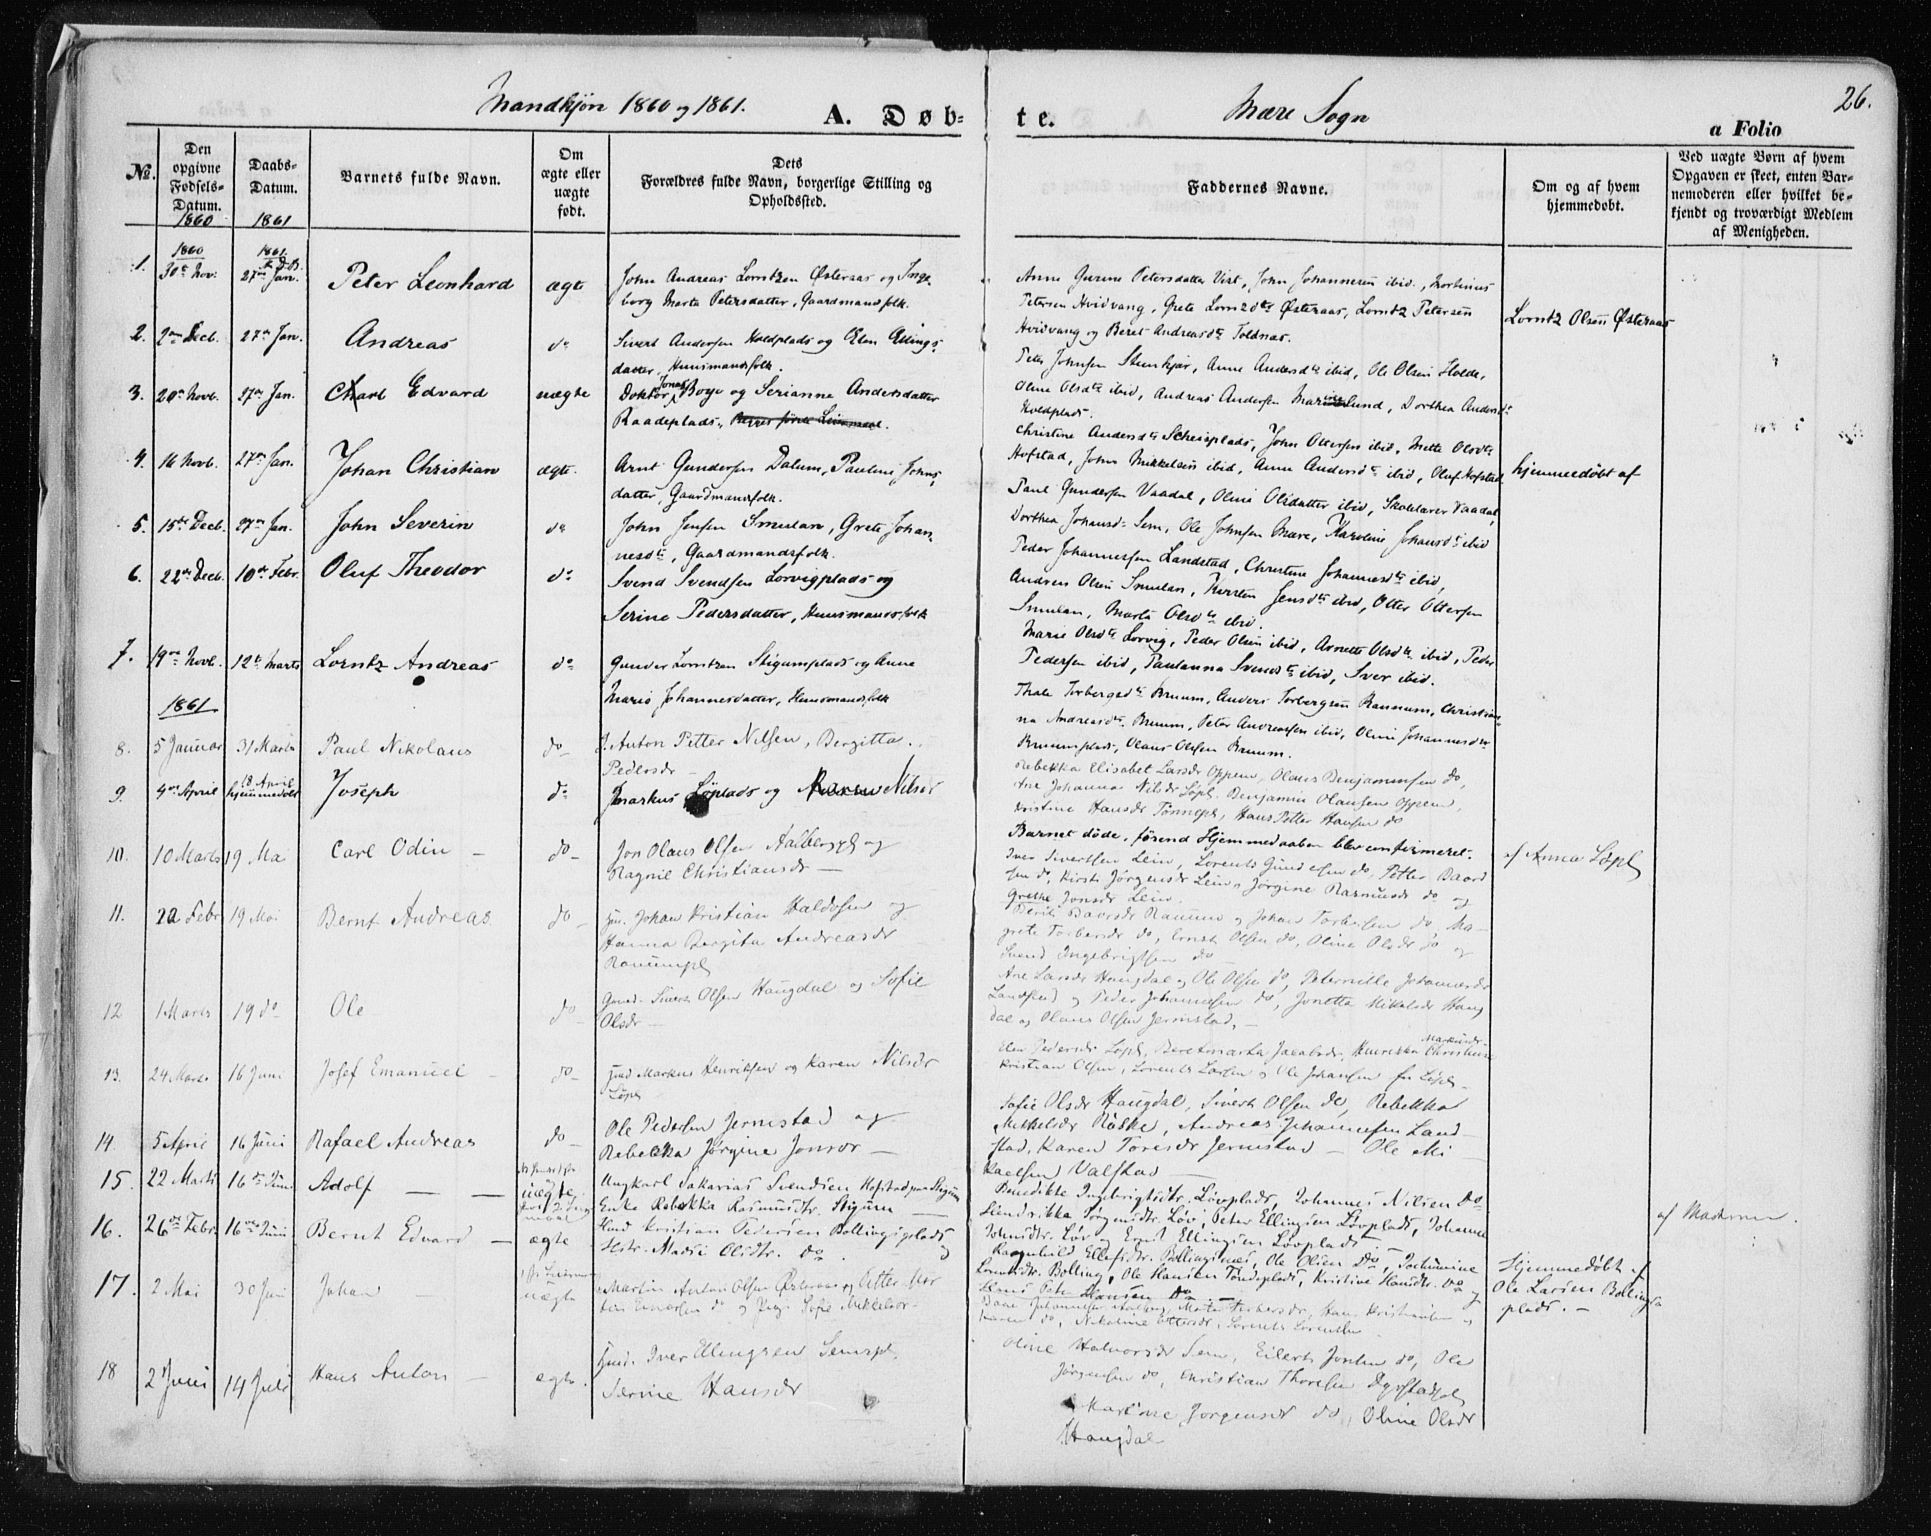 Mandkjøn 1860 og 1861.
A. Døb-
te.
Mære Sogn
26.
a Folio
No.
Den opgivne Fødsels-Datum.
Daabs-Datum.
Barnets fulde Navn.
Om ægte eller uægte født.
Dets Forældres fulde Navn, borgerlige Stilling og Opholdssted.
Faddernes Navne.
Om og af hvem hjemmedøbt.
Ved uægte Børn af hvem Opgaven er skeet, enten Barnemoderen eller hvilket bekjendt og troværdigt Medlem af Menigheden.
1860 1861
1860 1861
1. 30te Nov. 27de Jan. Peter Leonhard ægte
John Andreas Lorntzen Østeraas og Inge-
borg Marta Petersdatter, Gaardmandsfolk.
Petersdatter Vist, John Johannesen ibid., Mortinus
Petersen Hvidvang, Grete Lorntzdtr Østeraas, Lorntz Petersen
Hvidvang og Beret Andreasdtr Toldnæs.
Lorntz Olsen Østeraas
2. 2den Decb. 27de Jan. Andreas do
Sivert Andersen Holdplads og Elen Ellings-
datter, Huusmandsfolk.
Peter Johnsen Steenkjær, Anne Andersdtr ibid, Ole Olsen Holde,
Oline Olsdtr ibid, Andreas Andersen Marienlund, Dorthea Andersdtr
Holdplads.
3. 20de Novb. 27de Jan. Carl Edvard uægte
Doktor Jonas Boye og Serianna Andersdatter
Raadeplads,
Christine Andersdtr Scheisplads, John Ottersen ibid, Mette Olsdtr
Hofstad, John Mikkelsen ibid, Anne Andersdtr ibid, Oluf Hofstad.
4. 16 Novb. 27de Jan. Johan Christian ægte.
Arnt Gundersen Dalum, Pauline Johns-
datter Gaardmandsfolk.
Paul Gundersen Vaadal, Oline Olsdatter ibid, Skolelærer Vaadal,
Dorthea Johansdr Sem, Ole Johnsen Mære, Karoline Johansdtr ibid
hjemmedøbt af
5. 15de Decb. 27de Jan. John Severin do
John Jensen Smulan, Grete Johan-
nesdtr, Gaardmandsfolk.
Peder Johannessen Landstad, Christine Johannesdtr ibid,
Andreas Olsen Smulan, Kirsten Jensdtr ibid, Otter Ottersen
Smulan, Marta Olsdtr ibid.
6. 22de Decb. 10de Febr. Oluf Theodor do
Svend Svendsen Lorvigplads og
Serine Pedersdatter, Huusmandsfolk
Marie Olsdtr Lorvig, Peder Olsen ibid, Arnette Olsdtr ibid, Peder
Pedersen ibid, Paulanna Svendsdtr ibid, Sver ibid.
7. 19de Novb. 12te Marts Lorntz Andreas do
Gunder Lorntzen Stigumplads og Anne
Marie Johannesdatter, Huusmandsfolk
Thale Torbergsdtr Bruum, Anders Torbergsen Rannum, Christian-
na Andreasdtr Bruum, Peter Andreassen ibid, Oline Johannesdtr
Bruumplads, Olaus Olsen Bruum.
1861
8. 5 Januar 31 Marts Paul Nikolaus do
Anton Petter Nilsen, Bergitta
Pedersdr
Rebekka Elisabet Larsdr Oppem, Olaus Benjaminsen do,
Ane Johanna Nilsdr Løpl, Benjamin Olausen Oppem,
Kristine Hansdr Tønnepl, Hans Petter Hansen do
9. 4de April 18 April hjemmedøbt Joseph do
Markus Løplads og Karen Nilsdr
Barnet døde, førend Hjemmedaaben blev confirmeret.
af Anna Løpl
10. 10 Marts 19 Mai Carl Odin do
Jon Olaus Olsen Aalbergpl og
Ragnil Christiansdr
Iver Sivertsen Lein, Lorents Gundersen do, Petter Baard
sen do, Kirsti Jørgensdr Lein, Jørgine Rasmusdr do og
Grethe Jonsdr Lein.
11. 22 Febr 19 Mai Bernt Andreas do
Johan Kristian Haldosen og
Hanna Bergita Andreasdr
Ranumpl
Berit Baarsdr Ranum og Johan Torbersen do, Ma-
grete Torbersdr do, Ernst Olsen do, Oline Olsdr do og
Svend Ingebrigtsen do
12 1 Marts 19 do Ole do
Sivert Olsen Haugdal og Sofie
Olsdr
Ane Larsdr Haugdal og Ole Olsen do, Peternille Johannesdr
Landstad og Peder Johannesen do, Jonetta Mikkelsdr Haug
dal og Olaus Olsen Jermstad.
13. 24 Marts 16 Juni Josef Emanuel do
Markus Henriksen og Karen Nilsdr
Løpl
Elen Pedersdr Løpl, Beretmarta Jacobsdr, Henrikka Markusdr Christiansen
Kristian Olsen, Lorents Larsen og Ole Johansen fra Løpl
14. 5 April 16 Juni Rafael Andreas do
Ole Pedersen Jermstad og
Rebekka Jørgine Jonsdr
Sofie Olsdr Haugdal, Sivert Olsen do, Rebekka
Mikkelsdr Røske, Andreas Johannesen Land-
stad, Karen Toresdr Jermstad — Ole Mi
kaelsen Valstad
15. 22 Marts 16de Juni Adolf uægte
Ungkarl Sakarias Svendsen Hofstad paa Stigum
Enke Rebekka Rasmusdtr. Stigum
Benedikte Ingebrigtsdtr. Løvplads, Johannes Nilsen Do
Hendrikka Jørgensdtr. Løv, Peter Ellingsen Løvplads, Johanne
Johnsdtr. Løv og Ernst Ellingsen Løvplads
af Moderen.
16. 26de Febr. 16de Juni Bernt Edvard ægte
Husmd Kristian Pedersen Bollingsplads og
Hstr. Marie Olsdtr. Do
Ragnhild Ellefsdtr. Bollingsnes, Ole Olsen Do, Jochumine
Lorntsdtr. Bolling, Ole Hansen Tøndeplads, Kristine Hansdtr. Do og
Hans Peter Hansen Do
Hjemmedøbt af
Ole Larsen Bollings
plads.
17. 2 Mai 30 Juni Johan uægte
Martin Anton Olsen Østeraas og
Sofie Mikkelsdr
18 2 Juni 14 Juli Hans Anton ægte.
Husmd. Iver Ellingsen Semspl,
Serine Hansdr
Oline Halvorsdr Sem, Eilert Jonsen do, Ole
Jørgensen do, Christian Thoresen Dyrstadpl
Martine Jørgensdr do, Oline Olsdr
Haugdal